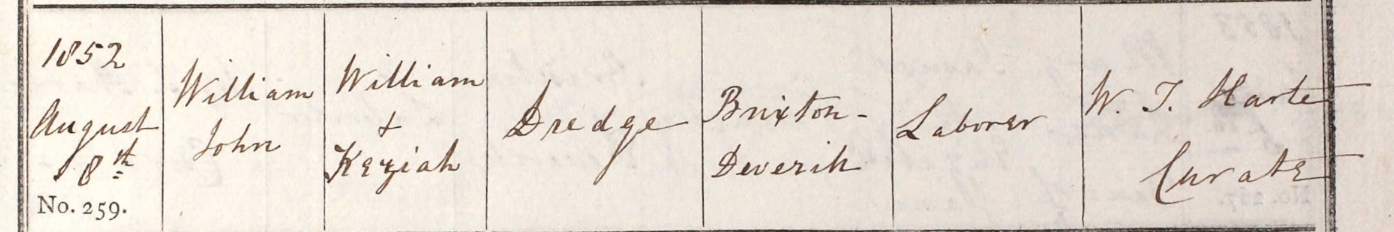 1852
August
8th
No. 259.
William
John
William
+
Keziah
Dredge
Brixton-
Deverih
Laborer
W. T. Harte
Curate